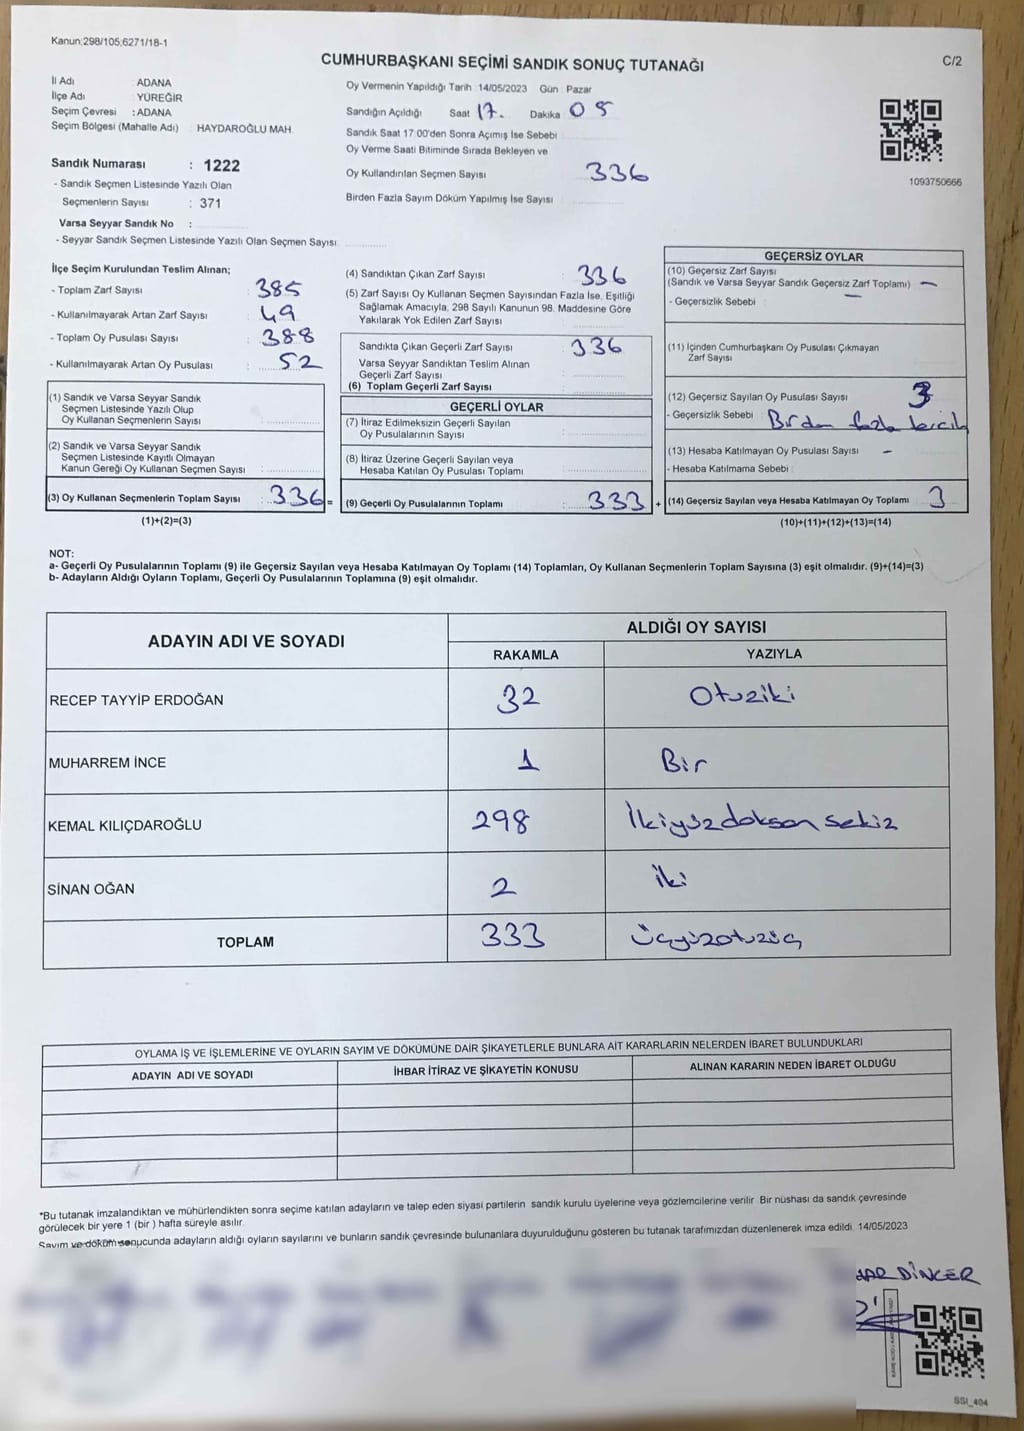 Kanun;298/105;6271/18-1
C/2
CUMHURBAŞKANI SEÇİMİ SANDIK SONUÇ TUTANAĞI
İl Adı : ADANA
İlçe Adı : YÜREĞİR
Seçim Çevresi : ADANA
Seçim Bölgesi (Mahalle Adı) : HAYDAROĞLU MAH.
Sandık Numarası : 1222
- Sandık Seçmen Listesinde Yazılı Olan
Seçmenlerin Sayısı : 371
Varsa Seyyar Sandık No :
- Seyyar Sandık Seçmen Listesinde Yazılı Olan Seçmen Sayısı
Oy Vermenin Yapıldığı Tarih : 14/05/2023 Gün : Pazar
Sandığın Açıldığı Saat 17. Dakika 05
Sandık Saat 17:00'den Sonra Açımış İse Sebebi
Oy Verme Saati Bitiminde Sırada Bekleyen ve
Oy Kullandırılan Seçmen Sayısı 336
Birden Fazla Sayım Döküm Yapılmış İse Sayısı
1093750666
İlçe Seçim Kurulundan Teslim Alınan;
- Toplam Zarf Sayısı : 385
- Kullanılmayarak Artan Zarf Sayısı : 49
- Toplam Oy Pusulası Sayısı : 388
- Kullanılmayarak Artan Oy Pusulası : 52
(1) Sandık ve Varsa Seyyar Sandık
Seçmen Listesinde Yazılı Olup
Oy Kullanan Seçmenlerin Sayısı :
(2) Sandık ve Varsa Seyyar Sandık
Seçmen Listesinde Kayıtlı Olmayan
Kanun Gereği Oy Kullanan Seçmen Sayısı :
(3) Oy Kullanan Seçmenlerin Toplam Sayısı : 336 =
(1)+(2)=(3)
(4) Sandıktan Çıkan Zarf Sayısı : 336
(5) Zarf Sayısı Oy Kullanan Seçmen Sayısından Fazla İse, Eşitliği
Sağlamak Amacıyla, 298 Sayılı Kanunun 98. Maddesine Göre
Yakılarak Yok Edilen Zarf Sayısı
Sandıkta Çıkan Geçerli Zarf Sayısı : 336
Varsa Seyyar Sandıktan Teslim Alınan
Geçerli Zarf Sayısı
(6) Toplam Geçerli Zarf Sayısı :
GEÇERLİ OYLAR
(7) İtiraz Edilmeksizin Geçerli Sayılan
Oy Pusulalarının Sayısı
(8) İtiraz Üzerine Geçerli Sayılan veya
Hesaba Katılan Oy Pusulası Toplamı
(9) Geçerli Oy Pusulalarının Toplamı : 333 +
GEÇERSİZ OYLAR
(10) Geçersiz Zarf Sayısı
(Sandık ve Varsa Seyyar Sandık Geçersiz Zarf Toplamı) : -
- Geçersizlik Sebebi : -
(11) İçinden Cumhurbaşkanı Oy Pusulası Çıkmayan
Zarf Sayısı
(12) Geçersiz Sayılan Oy Pusulası Sayısı : 3
- Geçersizlik Sebebi : Birden fazla tercih
(13) Hesaba Katılmayan Oy Pusulası Sayısı : -
- Hesaba Katılmama Sebebi :
(14) Geçersiz Sayılan veya Hesaba Katılmayan Oy Toplamı : 3
(10)+(11)+(12)+(13)=(14)
NOT:
a- Geçerli Oy Pusulalarının Toplamı (9) ile Geçersiz Sayılan veya Hesaba Katılmayan Oy Toplamı (14) Toplamları, Oy Kullanan Seçmenlerin Toplam Sayısına (3) eşit olmalıdır. (9)+(14)=(3)
b- Adayların Aldığı Oyların Toplamı, Geçerli Oy Pusulalarının Toplamına (9) eşit olmalıdır.
ADAYIN ADI VE SOYADI ALDIĞI OY SAYISI
RAKAMLA YAZIYLA
RECEP TAYYİP ERDOĞAN 32 Otuziki
MUHARREM İNCE 1 Bir
KEMAL KILIÇDAROĞLU 298 İkiyüzdoksan sekiz
SİNAN OĞAN 2 iki
TOPLAM 333 üçyüzotuzüç
OYLAMA İŞ VE İŞLEMLERİNE VE OYLARIN SAYIM VE DÖKÜMÜNE DAİR ŞİKAYETLERLE BUNLARA AİT KARARLARIN NELERDEN İBARET BULUNDUKLARI
ADAYIN ADI VE SOYADI İHBAR İTİRAZ VE ŞİKAYETİN KONUSU ALINAN KARARIN NEDEN İBARET OLDUĞU
*Bu tutanak imzalandıktan ve mühürlendikten sonra seçime katılan adayların ve talep eden siyasi partilerin sandık kurulu üyelerine veya gözlemcilerine verilir. Bir nüshası da sandık çevresinde
görülecek bir yere 1 (bir ) hafta süreyle asılır.
Sayım ve döküm sonucunda adayların aldığı oyların sayılarını ve bunların sandık çevresinde bulunanlara duyurulduğunu gösteren bu tutanak tarafımızdan düzenlenerek imza edildi. 14/05/2023
DİNÇER
SSI_404